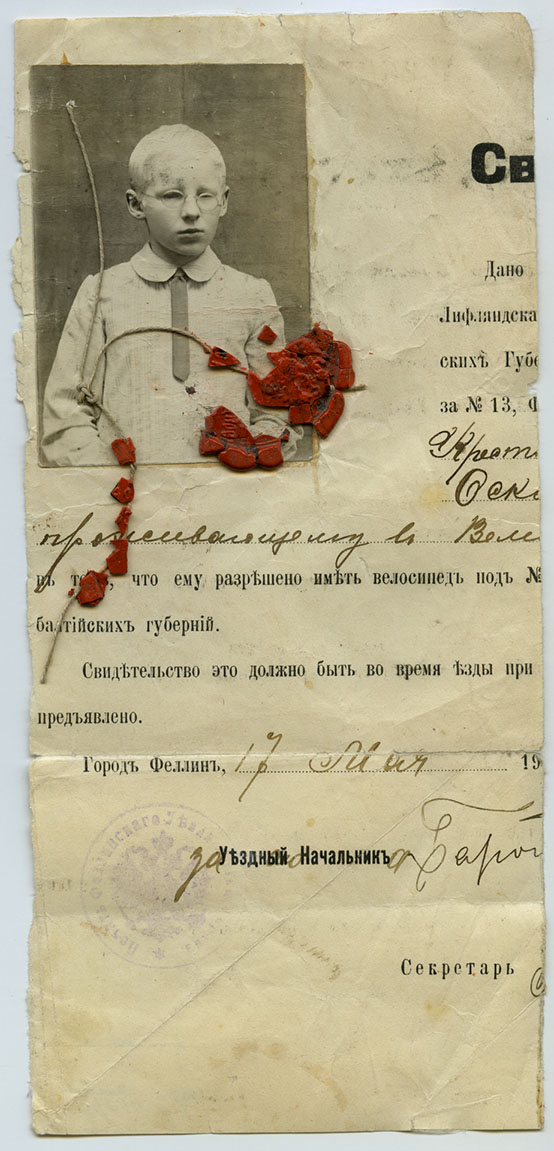 Св
Дано
Лифляндска
скихъ Губе
за № 13, Ф
Крест
Оска
проживающему в Вел
въ томъ, что ему разрѣшено имѣть велосипедъ подъ №
балтійскихъ губерній.
Свидѣтельство это должно быть во время ѣзды при
предъявлено.
Городъ Феллинъ, 17 Мая 19
за Уѣздный Начальникъ Барон
Секретарь